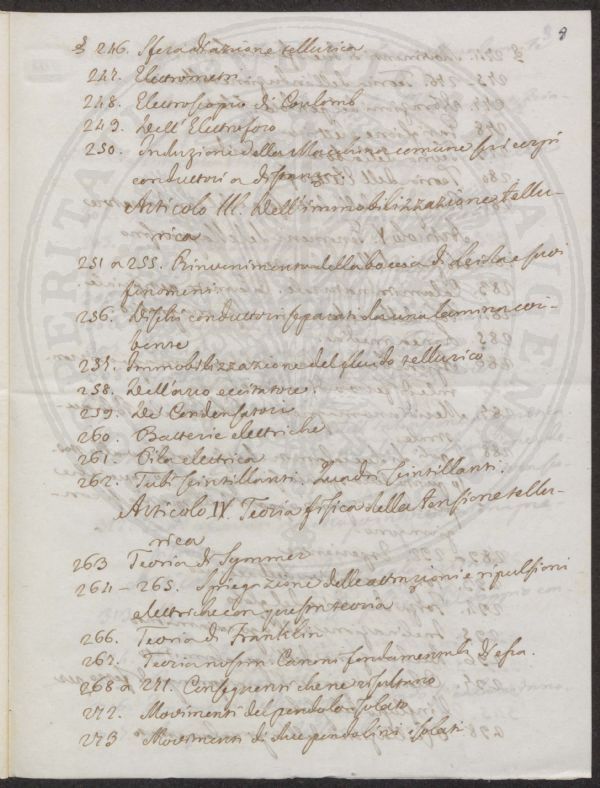 8
§ 246. Sfera di azione tellurica
247. Elettrometri
248. Elettroscopio di Coulomb
249. Dell'Elettroforo
250. Induzione della Macchina comune sui corpi
conduttori a distanza.
Articolo III. Dell'immobilizzazione tellu-
rica
251 a 255. Rinvenimento della boccia di Leida e suoi
fenomeni
256. Dischi conduttori separati da una lamina coi-
bente
257. Immobilizzazione del fluido tellurico
258. Dell'arco eccitatore.
259. De' Condensatori
260. Batterie elettriche
261. Pila elettrica
262. Tubi scintillanti. Quadri scintillanti.
Articolo IV. Teoria fisica della tensione tellu-
rica
263 Teoria di Symmer
264 – 265. Spiegazione delle attrazioni e ripulsioni
elettriche con questa teoria
266. Teoria di Franklin
267. Teoria nostra. Canoni fondamentali di essa.
268 a 271. Conseguenze che ne risultano
272. Movimenti del pendolo isolato
273 Movimenti di due pendolini isolati